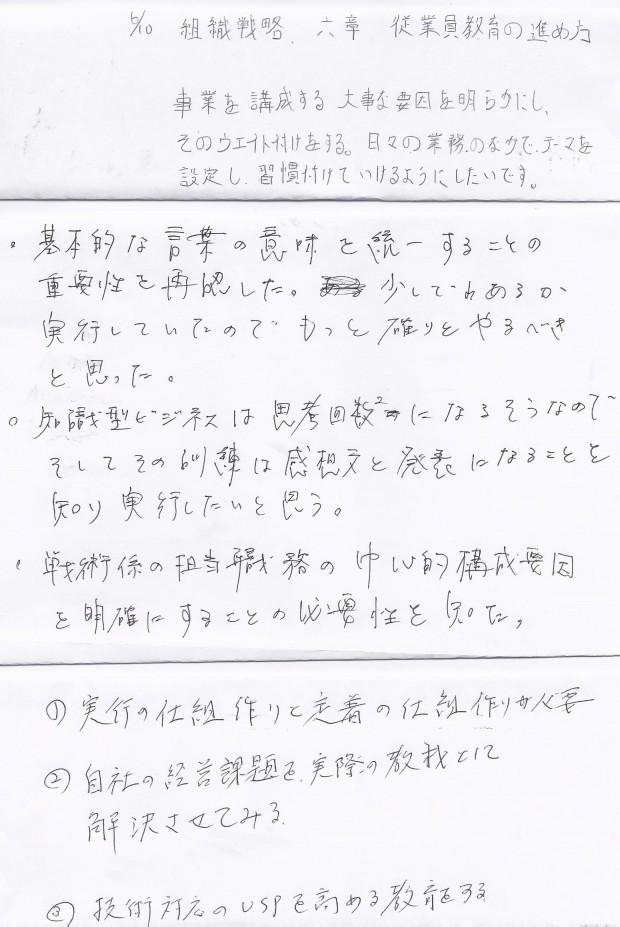 5/10 組織戦略、六章 従業員教育の進め方
事業を講成する大事な要因を明らかにし、
そのウエイト付けをする。日々の業務のなかで、テーマを
設定し、習慣付けていけるようにしたいです。
・基本的な言葉の意味を統一することの
重要性を再認した。少しではあるが
実行していたのでもっと確りとやるべき
と思った。
○知識型ビジネスは思考回数²になるそうなので
そしてその訓練は感想文と発表になることを
知り実行したいと思う。
・戦術係の担当職務の中心的構成要因
を明確にすることの必要性を知た。
①実行の仕組作りと定着の仕組作りが必要
②自社の経営課題を、実際の教材として
解決させてみる
③技術対応のUSPを高める教育をする